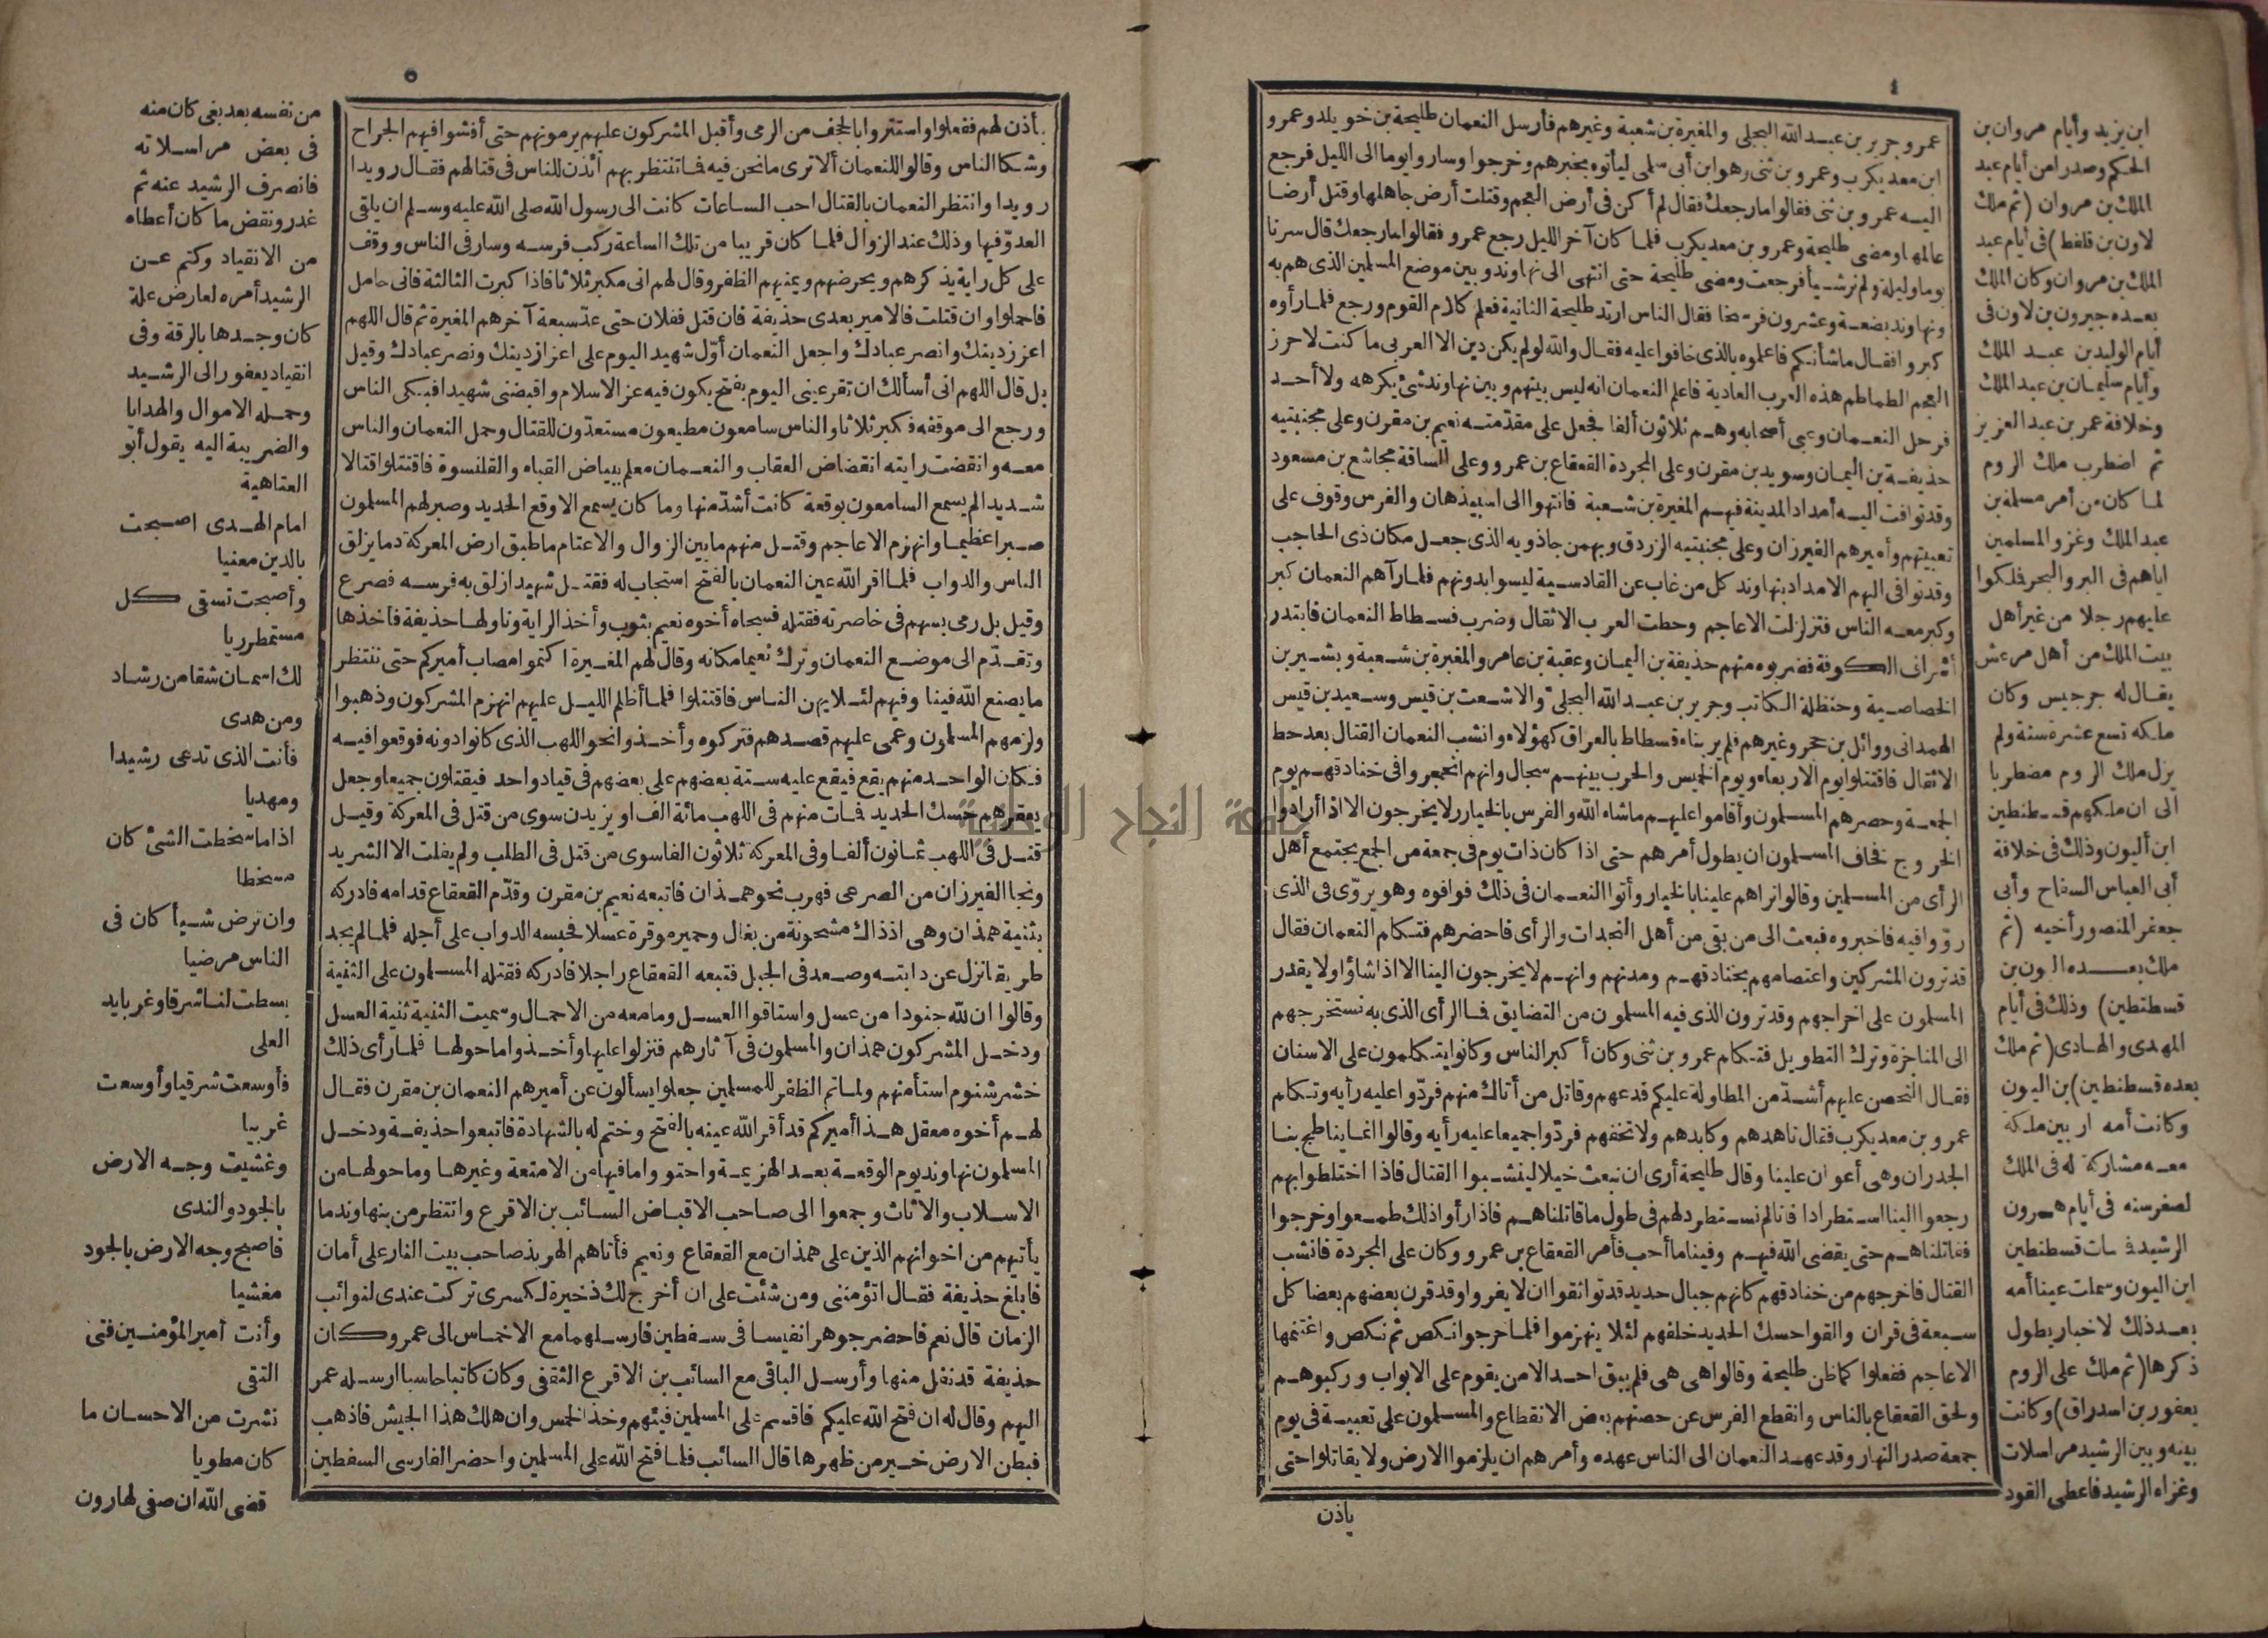 ٤
ابن يزيد وأيام مروان بن
الحكم وصدرا من أيام عبد
الملك بن مروان (ثم ملك
لاون بن قلفط) فى أيام عبد
الملك بن مروان وكان الملك
بعده جيرون بن لاون فى
أيام الوليد بن عبد الملك
وأيام سليمان بن عبد الملك
وخلافة عمر بن عبد العزيز
ثم اضطرب ملك الروم
لما كان من أمر مسلمة بن
عبد الملك وغزو المسلمين
اياهم فى البر والبحر فملكوا
عليهم رجلا من غير أهل
بيت الملك من أهل مرعش
يقال له جرجيس وكان
ملكه تسع عشرة سنة ولم
يزل ملك الروم مضطربا
الى ان ملكهم قسطنطين
ابن أليون وذلك فى خلافة
أبى العباس السفاح وأبى
جعفر المنصور أخيه (ثم
ملك بعده اليون بن
قسطنطين) وذلك فى أيام
المهدى والهادى (ثم ملك
بعده قسطنطين) بن اليون
وكانت أمه اربين ملكة
معه مشاركة له فى الملك
لصغر سنه فى أيام هرون
الرشيد فمات قسطنطين
ابن اليون وسملت عينا أمه
بعد ذلك لاخبار يطول
ذكرها (ثم ملك على الروم
يعفور بن اسدراق) وكانت
بينه وبين الرشيد مراسلات
وغزاه الرشيد فاعطى القود
عمرو وجرير بن عبد الله البجلى والمغيرة بن شعبة وغيرهم فأرسل النعمان طليحة بن خويلد وعمرو
ابن معديكرب وعمرو بن ثنى وهو ابن أبى سلمى ليأتوه بخبرهم وخرجوا وساروا يوما الى الليل فرجع
اليه عمرو بن ثنى فقالوا ما رجعك فقال لم أكن فى أرض العجم وقتلت أرض جاهلها وقتل أرضا
عالمها ومضى طليحة وعمرو بن معديكرب فلما كان آخر الليل رجع عمرو فقالوا ما رجعك قال سرنا
يوما وليلة ولم نر شيأ فرجعت ومضى طليحة حتى انتهى الى نهاوند وبين موضع المسلمين الذى هم به
ونهاوند بضعة وعشرون فرسخا فقال الناس ارتد طليحة الثانية فعلم كلام القوم ورجع فلما رأوه
كبروا فقال ما شأنكم فاعلموه بالذى خافوا عليه فقال والله لو لم يكن دين الا العربى ما كنت لاحرز
العجم الطماطم هذه العرب العادية فاعلم النعمان انه ليس بينهم وبين نهاوند شئ يكرهه ولا أحد
فرحل النعمان وعبى أصحابه وهم ثلاثون ألفا فجعل على مقدّمته نعيم بن مقرن وعلى مجنبتيه
حذيفة بن اليمان وسويد بن مقرن وعلى المجردة القعقاع بن عمرو وعلى الساقة مجاشع بن مسعود
وقد توافت اليه أمداد المدينة فيهم المغيرة بن شعبة فانتهوا الى اسبيذهان والفرس وقوف على
تعبيتهم وأميرهم الفيرزان وعلى مجنبتيه الزردق وبهمن جاذويه الذى جعل مكان ذى الحاجب
وقد توافى اليهم الامداد بنهاوند كل من غاب عن القادسية ليسوا بدونهم فلما رآهم النعمان كبر
وكبر معه الناس فتزلزلت الاعاجم وحطت العرب الاثقال وضرب فسطاط النعمان فابتدر
أشراف الكوفة فضربوه منهم حذيفة بن اليمان وعقبة بن عامر والمغيرة بن شعبة وبشير بن
الخصاصية وحنظلة الكاتب وجرير بن عبد الله البجلى والاشعث بن قيس وسعيد بن قيس
الهمدانى ووائل بن حجر وغيرهم فلم ير بناء فسطاط بالعراق كهؤلاء وانشب النعمان القتال بعد حط
الاثقال فاقتتلوا يوم الاربعاء ويوم الخميس والحرب بينهم سجال وانهم انجحروا فى خنادقهم يوم
الجمعة وحصرهم المسلمون وأقاموا عليهم ماشاء الله والفرس بالخيار لا يخرجون الا اذا أرادوا
الخروج فخاف المسلمون ان يطول أمرهم حتى اذا كان ذات يوم فى جمعة من الجمع يجتمع أهل
الرأى من المسلمين وقالوا نراهم علينا بالخيار وأتوا النعمان فى ذلك فوافوه وهو يروّى فى الذى
روّوا فيه فاخبروه فبعث الى من بقى من أهل النجدات والرأى فاحضرهم فتكلم النعمان فقال
قد ترون المشركين واعتصامهم بخنادقهم ومدنهم وانهم لا يخرجون الينا الا اذا شاؤا ولا يقدر
المسلمون على اخراجهم وقد ترون الذى فيه المسلمون من التضايق فما الرأى الذى به نستخرجهم
الى المناجزة وترك التطويل فتكلم عمرو بن ثنى وكان أكبر الناس وكانوا يتكلمون على الاسنان
فقال التحصن عليهم أشد من المطاولة عليكم فدعهم وقاتل من أتاك منهم فردّوا عليه رأيه وتكلم
عمرو بن معديكرب فقال ناهدهم وكابدهم ولا تخفهم فردّوا جميعا عليه رأيه وقالوا انما يناطح بنا
الجدران وهى أعوان علينا وقال طليحة أرى ان نبعث خيلا لينشبوا القتال فاذا اختلطوا بهم
رجعوا الينا استطرادا فانا لم نستطرد لهم فى طول ما قاتلناهم فاذا رأوا ذلك طمعوا وخرجوا
فقاتلناهم حتى يقضى الله فيهم وفينا ما أحب فأمر القعقاع بن عمرو وكان على المجردة فانشب
القتال فاخرجهم من خنادقهم كانهم جبال حديد قد تواثقوا ان لا يفروا وقد قرن بعضهم بعضا كل
سبعة فى قران والقوا حسك الحديد خلفهم لئلا ينهزموا فلما خرجوا نكص ثم نكص واغتنمها
الاعاجم ففعلوا كما ظن طليحة وقالوا هى هى فلم يبق احد الا من يقوم على الابواب وركبوهم
ولحق القعقاع بالناس وانقطع الفرس عن حصنهم بعض الانقطاع والمسلمون على تعبية فى يوم
جمعة صدر النهار وقد عهد النعمان الى الناس عهده وأمرهم ان يلزموا الارض ولا يقاتلوا حتى
ياذن
٥
يأذن لهم ففعلوا واستتروا بالحجف من الرمى وأقبل المشركون عليهم يرمونهم حتى أفشوا فيهم الجراح
وشكا الناس وقالوا للنعمان ألا ترى ما نحن فيه فما تنتظر بهم ائذن للناس فى قتالهم فقال رويدا
رويدا وانتظر النعمان بالقتال احب الساعات كانت الى رسول الله صلى الله عليه وسلم ان يلقى
العدوّ فيها وذلك عند الزوال فلما كان قريبا من تلك الساعة ركب فرسه وسار فى الناس ووقف
على كل راية يذكرهم ويحرضهم ويمنيهم الظفر وقال لهم انى مكبر ثلاثا فاذا كبرت الثالثة فانى حامل
فاحملوا وان قتلت فالامير بعدى حذيفة فان قتل ففلان حتى عدّ سبعة آخرهم المغيرة ثم قال اللهم
اعزز دينك وانصر عبادك واجعل النعمان أوّل شهيد اليوم على اعزاز دينك ونصر عبادك وقيل
بل قال اللهم انى أسألك ان تقر عينى اليوم بفتح يكون فيه عز الاسلام واقبضنى شهيدا فبكى الناس
ورجع الى موقفه فكبر ثلاثا والناس سامعون مطيعون مستعدّون للقتال وحمل النعمان والناس
معه وانقضت رايته انقضاض العقاب والنعمان معلم ببياض القباء والقلنسوة فاقتتلوا قتالا
شديدا لم يسمع السامعون بوقعة كانت أشدّ منها وما كان يسمع الا وقع الحديد وصبر لهم المسلمون
صبرا عظيما وانهزم الاعاجم وقتل منهم ما بين الزوال والاعتام ما طبق ارض المعركة دما يزلق
الناس والدواب فلما اقر الله عين النعمان بالفتح استجاب له فقتل شهيدا زلق به فرسه فصرع
وقيل بل رمى بسهم فى خاصرته فقتله فسجاه أخوه نعيم بثوب وأخذ الراية وناولها حذيفة فاخذها
وتقدّم الى موضع النعمان وترك نعيما مكانه وقال لهم المغيرة اكتموا مصاب أميركم حتى ننتظر
ما يصنع الله فينا وفيهم لئلا يهن الناس فاقتتلوا فلما أظلم الليل عليهم انهزم المشركون وذهبوا
ولزمهم المسلمون وعمى عليهم قصدهم فتركوه وأخذوا نحو اللهب الذى كانوا دونه فوقعوا فيه
فكان الواحد منهم يقع فيقع عليه ستة بعضهم على بعضهم فى قياد واحد فيقتلون جميعا وجعل
يعقرهم حسك الحديد فمات منهم فى اللهب مائة الف او يزيدن سوى من قتل فى المعركة وقيل
قتل فى اللهب ثمانون ألفا وفى المعركة ثلاثون الفا سوى من قتل فى الطلب ولم يفلت الا الشريد
ونجا الفيرزان من الصرعى فهرب نحو همذان فاتبعه نعيم بن مقرن وقدّم القعقاع قدامه فادركه
بثنية همذان وهى اذ ذاك مشحونة من بغال وحمير موقرة عسلا فحبسه الدواب على أجله فلما لم يجد
طريقا نزل عن دابته وصعد فى الجبل فتبعه القعقاع راجلا فادركه فقتله المسلمون على الثنية
وقالوا ان لله جنودا من عسل واستاقوا العسل وما معه من الاحمال وسميت الثنية ثنية العسل
ودخل المشركون همذان والمسلمون فى آثارهم فنزلوا عليها وأخذوا ما حولها فلما رأى ذلك
خشرشنوم استأمنهم ولما تم الظفر للمسلمين جعلوا يسألون عن أميرهم النعمان بن مقرن فقال
لهم أخوه معقل هذا أميركم قد أقر الله عينه بالفتح وختم له بالشهادة فاتبعوا حذيفة ودخل
المسلمون نهاوند يوم الوقعة بعد الهزيمة واحتووا ما فيها من الامتعة وغيرها وما حولها من
الاسلاب والاثاث وجمعوا الى صاحب الاقباض السائب بن الاقرع وانتظر من بنهاوند ما
يأتيهم من اخوانهم الذين على همذان مع القعقاع ونعيم فأتاهم الهربذ صاحب بيت النار على أمان
فابلغ حذيفة فقال اتؤمننى ومن شئت على ان أخرج لك ذخيرة لكسرى تركت عندى لنوائب
الزمان قال نعم فاحضر جوهرا نفيسا فى سفطين فارسلهما مع الاخماس الى عمر وكان
حذيفة قد نفل منها وأرسل الباقى مع السائب بن الاقرع الثقفى وكان كاتبا حاسبا ارسله عمر
اليهم وقال له ان فتح الله عليكم فاقسم على المسلمين فيئهم وخذ الخمس وان هلك هذا الجيش فاذهب
فبطن الارض خير من ظهرها قال السائب فلما فتح الله على المسلمين واحضر الفارسى السفطين
من نفسه بعد بغى كان منه
فى بعض مراسلاته
فانصرف الرشيد عنه ثم
غدر ونقض ما كان أعطاه
من الانقياد وكتم عن
الرشيد أمره لعارض علة
كان وجدها بالرقة وفى
انقياد يعفور الى الرشيد
وحمله الاموال والهدايا
والضريبة اليه يقول أبو
العتاهية
امام الهدى اصبحت
بالدين معنيا
وأصبحت تسقى كل
مستمطر ريا
لك اسمان شقا من رشاد
ومن هدى
فأنت الذى تدعى رشيدا
ومهديا
اذا ما سخطت الشئ كان
مسخطا
وان ترض شيأ كان فى
الناس مرضيا
بسطت لنا شرقا وغربا يد
العلى
فأوسعت شرقيا وأوسعت
غربيا
وغشيت وجه الارض
بالجود والندى
فاصبح وجه الارض بالجود
مغشيا
وأنت أمير المؤمنين فتى
التقى
نشرت من الاحسان ما
كان مطويا
قضى الله ان صفى لهارون
جامعة النجاح الوطنية